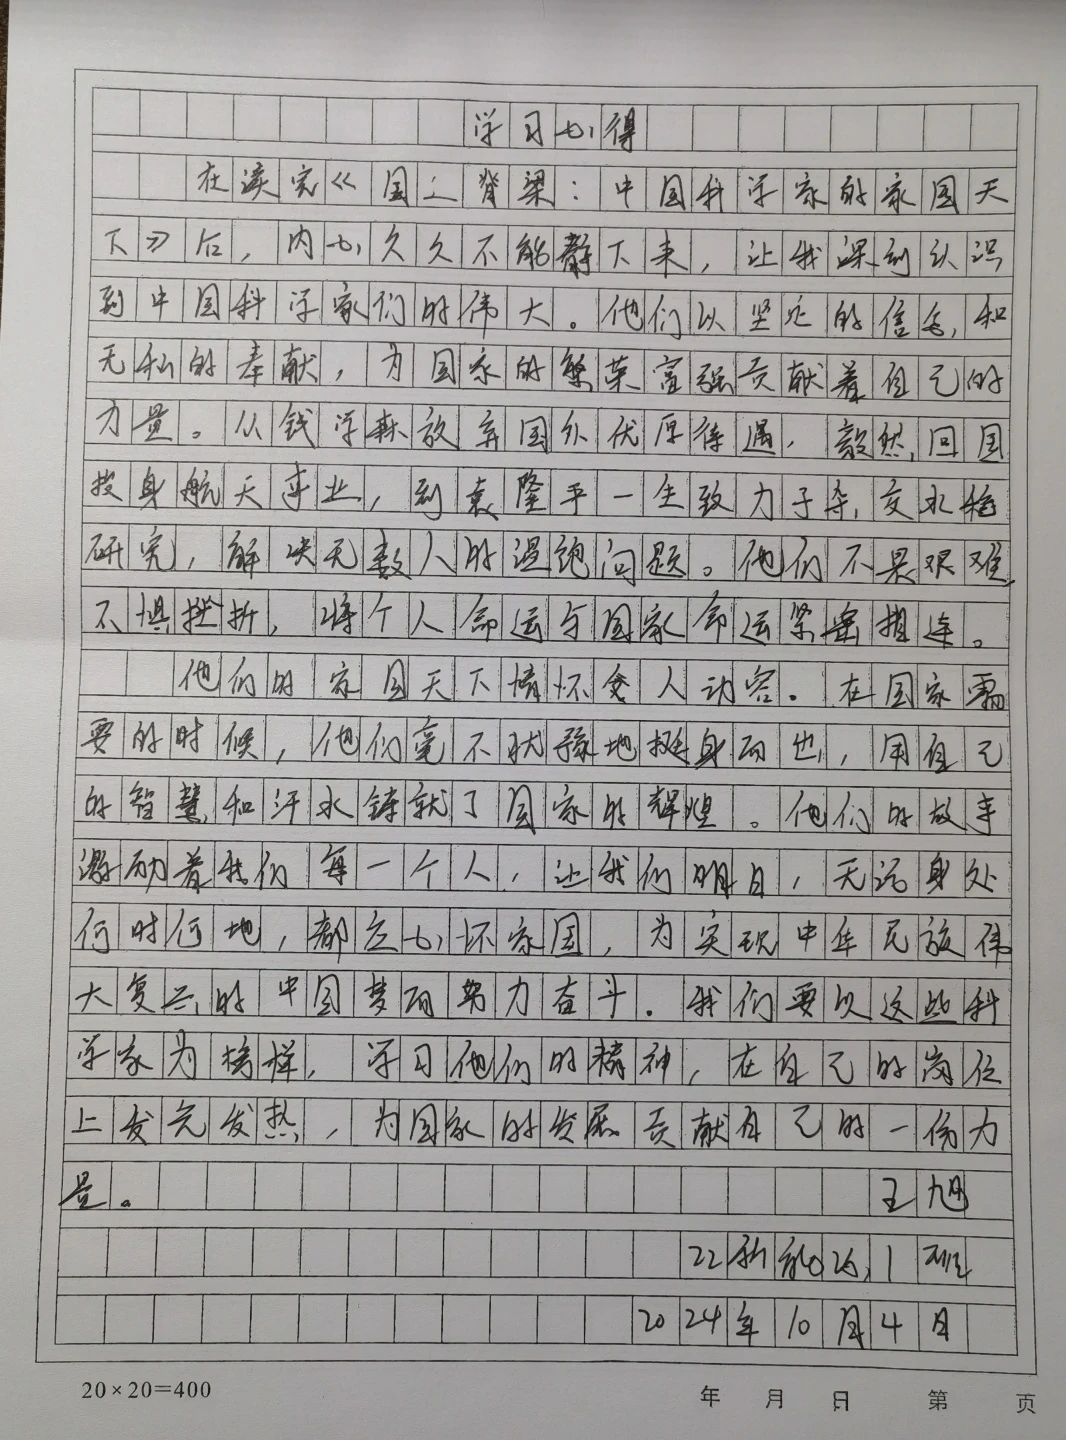 学习心得
在读完《国之脊梁：中国科学家的家国天
下》后，内心久久不能静下来，让我深刻认识
到中国科学家们的伟大。他们以坚定的信念，和
无私的奉献，为国家的繁荣富强贡献着自己的
力量。从钱学森放弃国外优厚待遇，毅然回国
投身航天事业，到袁隆平一生致力于杂交水稻
研究，解决无数人的温饱问题。他们不畏艰难，
不惧挫折，将个人命运与国家命运紧密相连。
他们的家国天下情怀令人动容。在国家需
要的时候，他们毫不犹豫地挺身而出，用自己
的智慧和汗水铸就了国家的辉煌。他们的故事
激励着我们每一个人，让我们明白，无论身处
何时何地，都应心怀家国，为实现中华民族伟
大复兴的中国梦而努力奋斗。我们要以这些科
学家为榜样，学习他们的精神，在自己的岗位
上发光发热，为国家的发展贡献自己的一份力
量。 王旭
22新能 1班
2024年10月4日
20×20=400 年 月 日 第 页